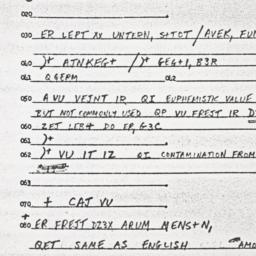 020
030 ER LEPT XX UNTERN, S+TCT / AVEK, EUN
040 )+ ATNKEG+ /)+ GEG+1, B3R
041 Q GEPM 042
050 A VU VEJNT IR QI EUPHEMISTIC VALUE
BUT NOT COMMONLY USED QP VU FREJT IR D
060 ZET LER+ DO EP, G3C
061 )+
062 )+ VU IT IZ QI CONTAMINATION FROM
063
070 + CAJ VU
080 ER FREJT DZ3X ARUM MENS+N,
QET SAME AS ENGLISH "AMO